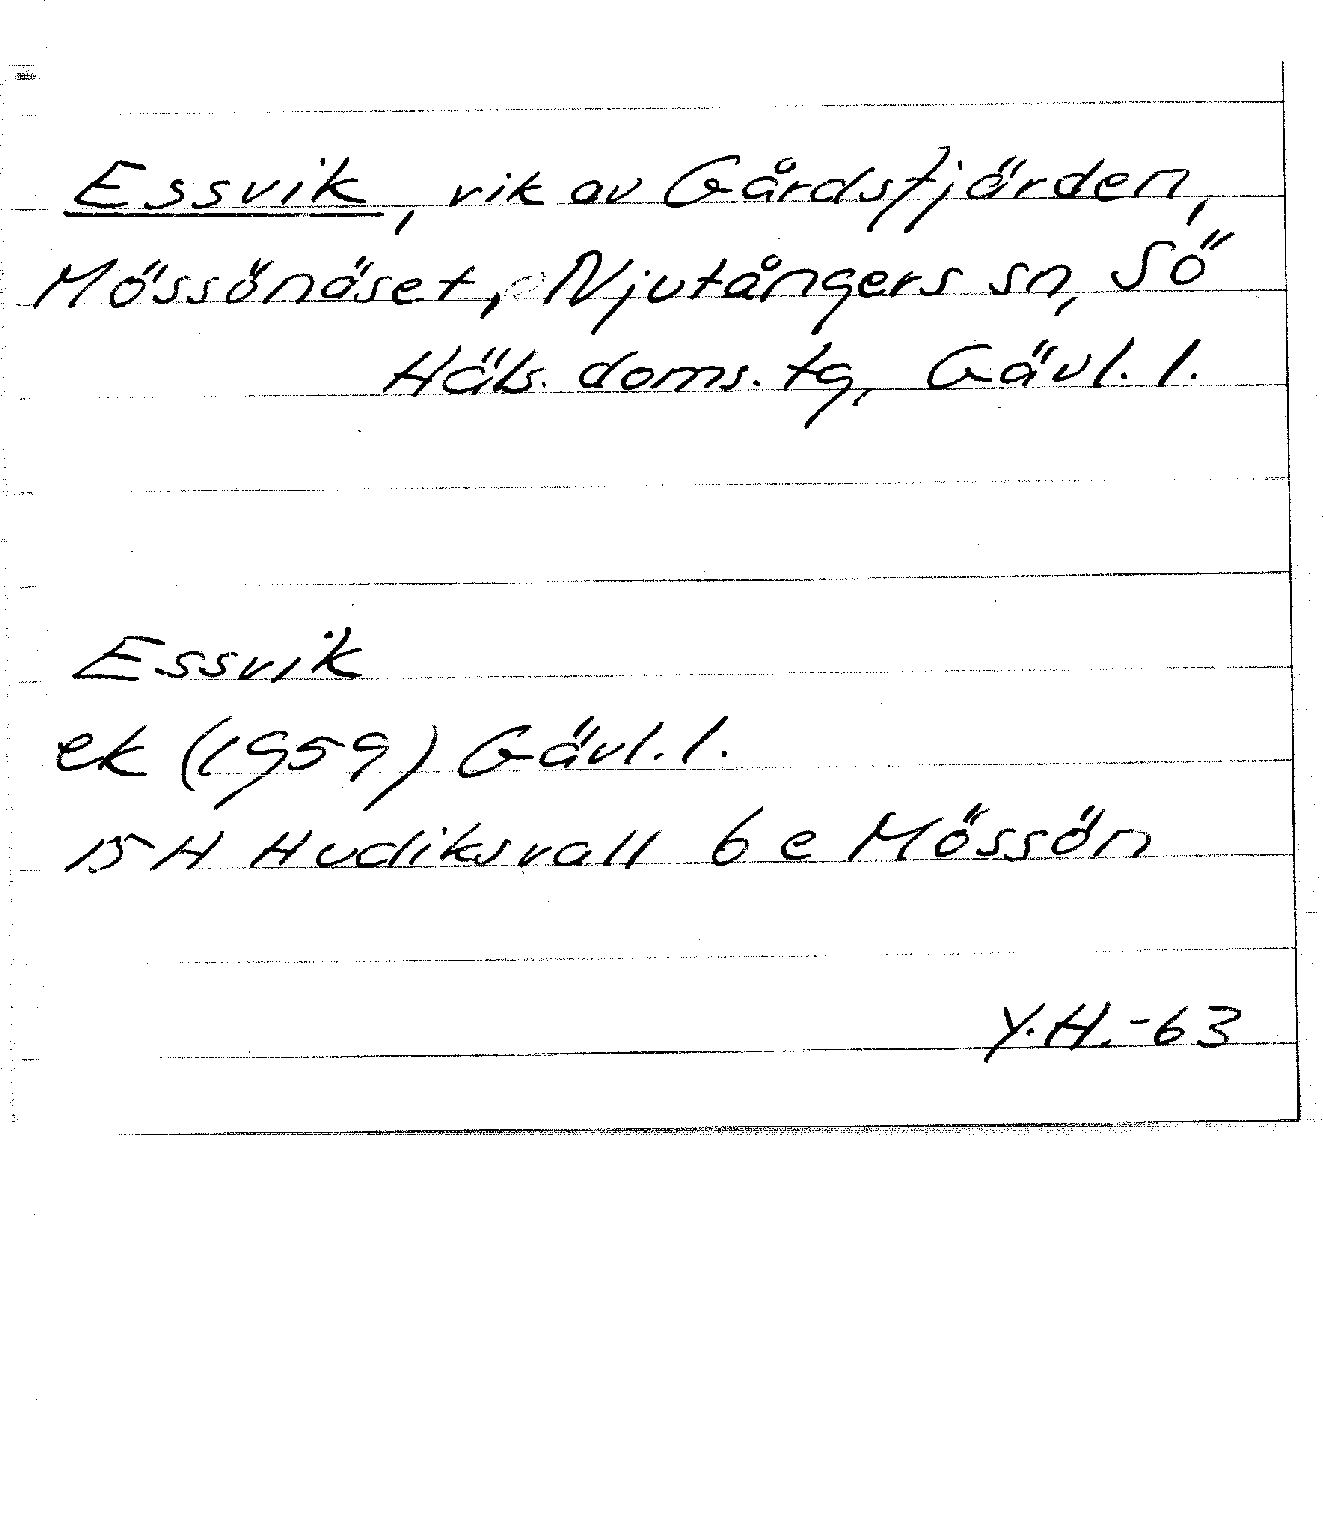 Essvik, vik av Gårdsfjärden,
Mössönäset, Njutångers sn, Sö
Häls. doms. tg, Gävl. l.
Essvik
ek (1959) Gävl. l.
15H Hudiksvall 6 e Mössön
Y.H.-63